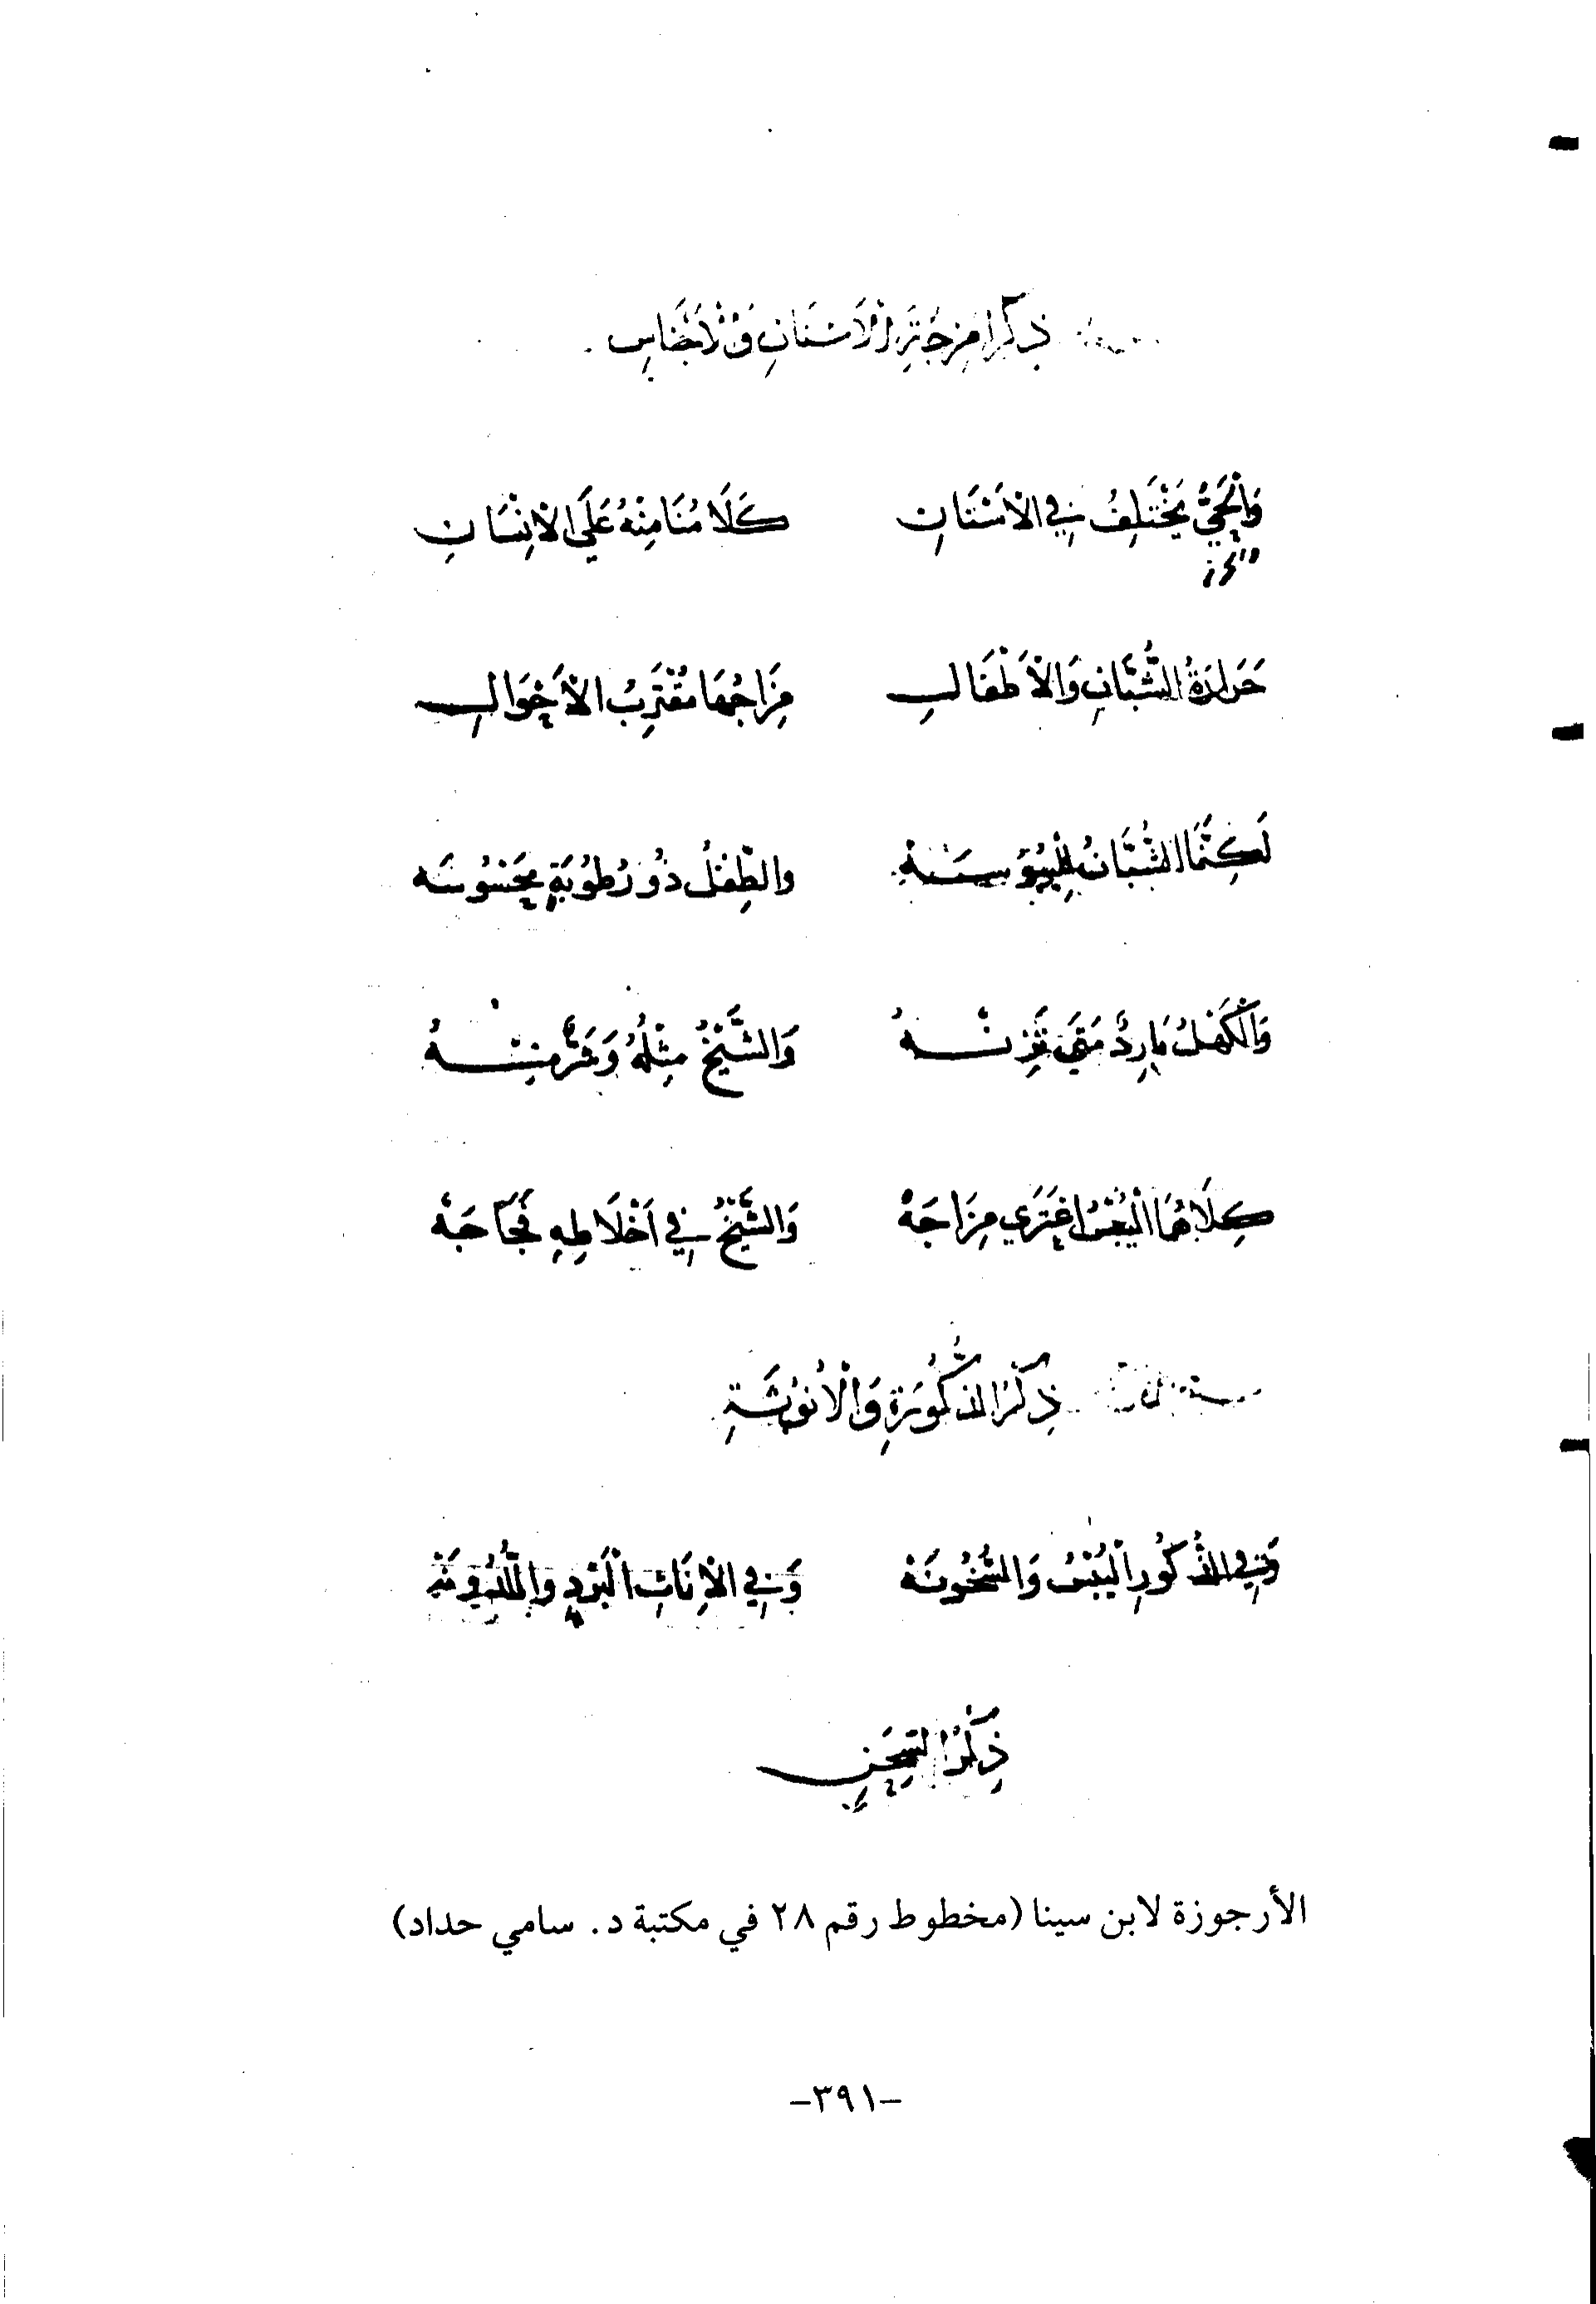 ذِكْرُ امْزِجَةِ الْاَسْنَانِ وَالْاَجْنَاسِ
وَالْحَيُّ يَخْتَلِفُ فِي الْاَسْنَانِ كَلَامُنَا مِنْهُ عَلَى الْاِنْسَانِ
حَرَارَةُ الشُّبَّانِ وَالْاَطْفَالِ مِزَاجُهَا مُقْتَرِبُ الْاَحْوَالِ
لَكِنَّمَا الشُّبَّانُ لِلْيُبُوسَةِ والطِّفْلُ ذُو رُطُوبَةٍ مَحْسُوسَه
وَالْكَهْلُ بَارِدٌ مَتَى تَزِنْهُ وَالشَّيْخُ مِثْلُهُ وَشَرٌّ مِنْهُ
كِلَاهُمَا الْيُبْسُ اعْتَرَى مِزَاجَهْ وَالشَّيْخُ فِي اَخْلَاطِهِ فَجَاجَهْ
ذِكْرُ الذُّكُورَةِ وَالْاُنُوثَةِ
وَفِي الذُّكُورِ الْيُبْسُ وَالسُّخُونَهْ وَفِي الْاِنَاثِ الْبَرْدِ وَاللُّدُونَهْ
ذِكْرُ السِّحَنِ
الأرجوزة لابن سينا (مخطوط رقم ٢٨ في مكتبة د. سامي حداد)
-٣٩١-